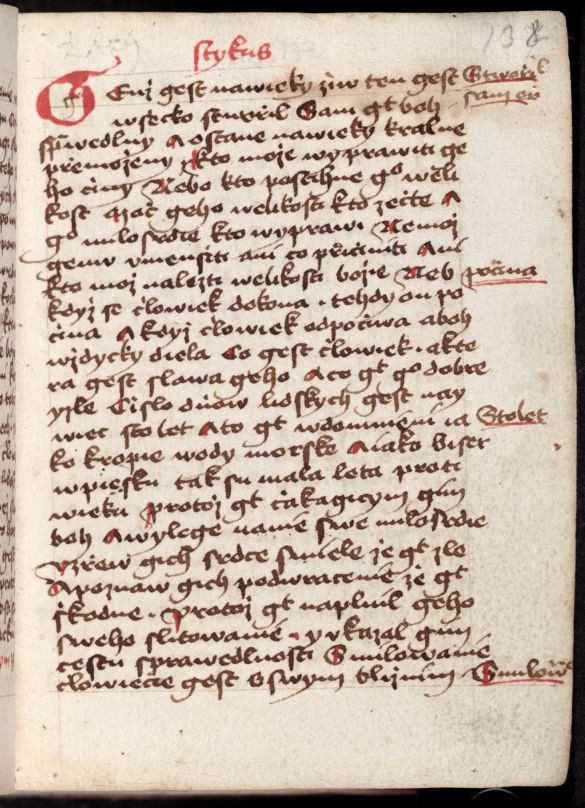 138
stykus
Tenż gest nawieky ziw ten gest Stworil
wsecko stworil Sam gt boh sam on
spwedlny A ostane nawieky kralne
přemożeny y kto može wyprawiti ge
ho činy Nebo kto postihne go weli
kost A moč geho welikosti kto zečte A
go milosrdie kto wyprawi Nemoż
gemu vmensiti ani co přičiniti Ani
kto moż nalezti welikosti bożie Neb počina
kdyż se člowiek dokona · tehdy on po
čina A kdyż člowiek odpočiwa a boh
wżdycky diela Co gest člowiek · a kte
ra gest slawa geho A co gt go dobre
y zle Cislo dnow lidskych gest nay
wiec sto let A to gt wdomnieni ia Stolet
ko kropie wody morske A iako biser
w piesku tak su mala leta proti
wieku Protoż gt čakagicym gim
boh A wylege na nie swe milosrdie
vzřew gich srdce smiele że gt zle
A poznaw gich podwracenie że gt
skodne · Protoż gt naplnil geho
sweho slitowanie · y vkazal gim
cestu sprawedlnosti Smilowanie
člowiečie gest v swym bliżnim · Smilow